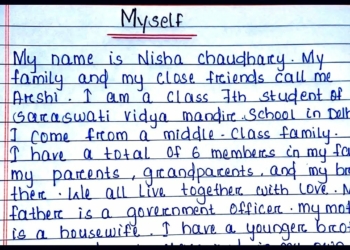 Myself
My name is Nisha chaudhary. My
family and my close friends call me
Arshi. I am a class 7th student of
Saraswati vidya mandir school in Delh
I come from a middle-class family.
I have a total of 6 members in my fa
my parents, grandparents, and my bro
ther. We all live together with love. M
father is a government officer. my mot
is a housewife. I have a younger brot